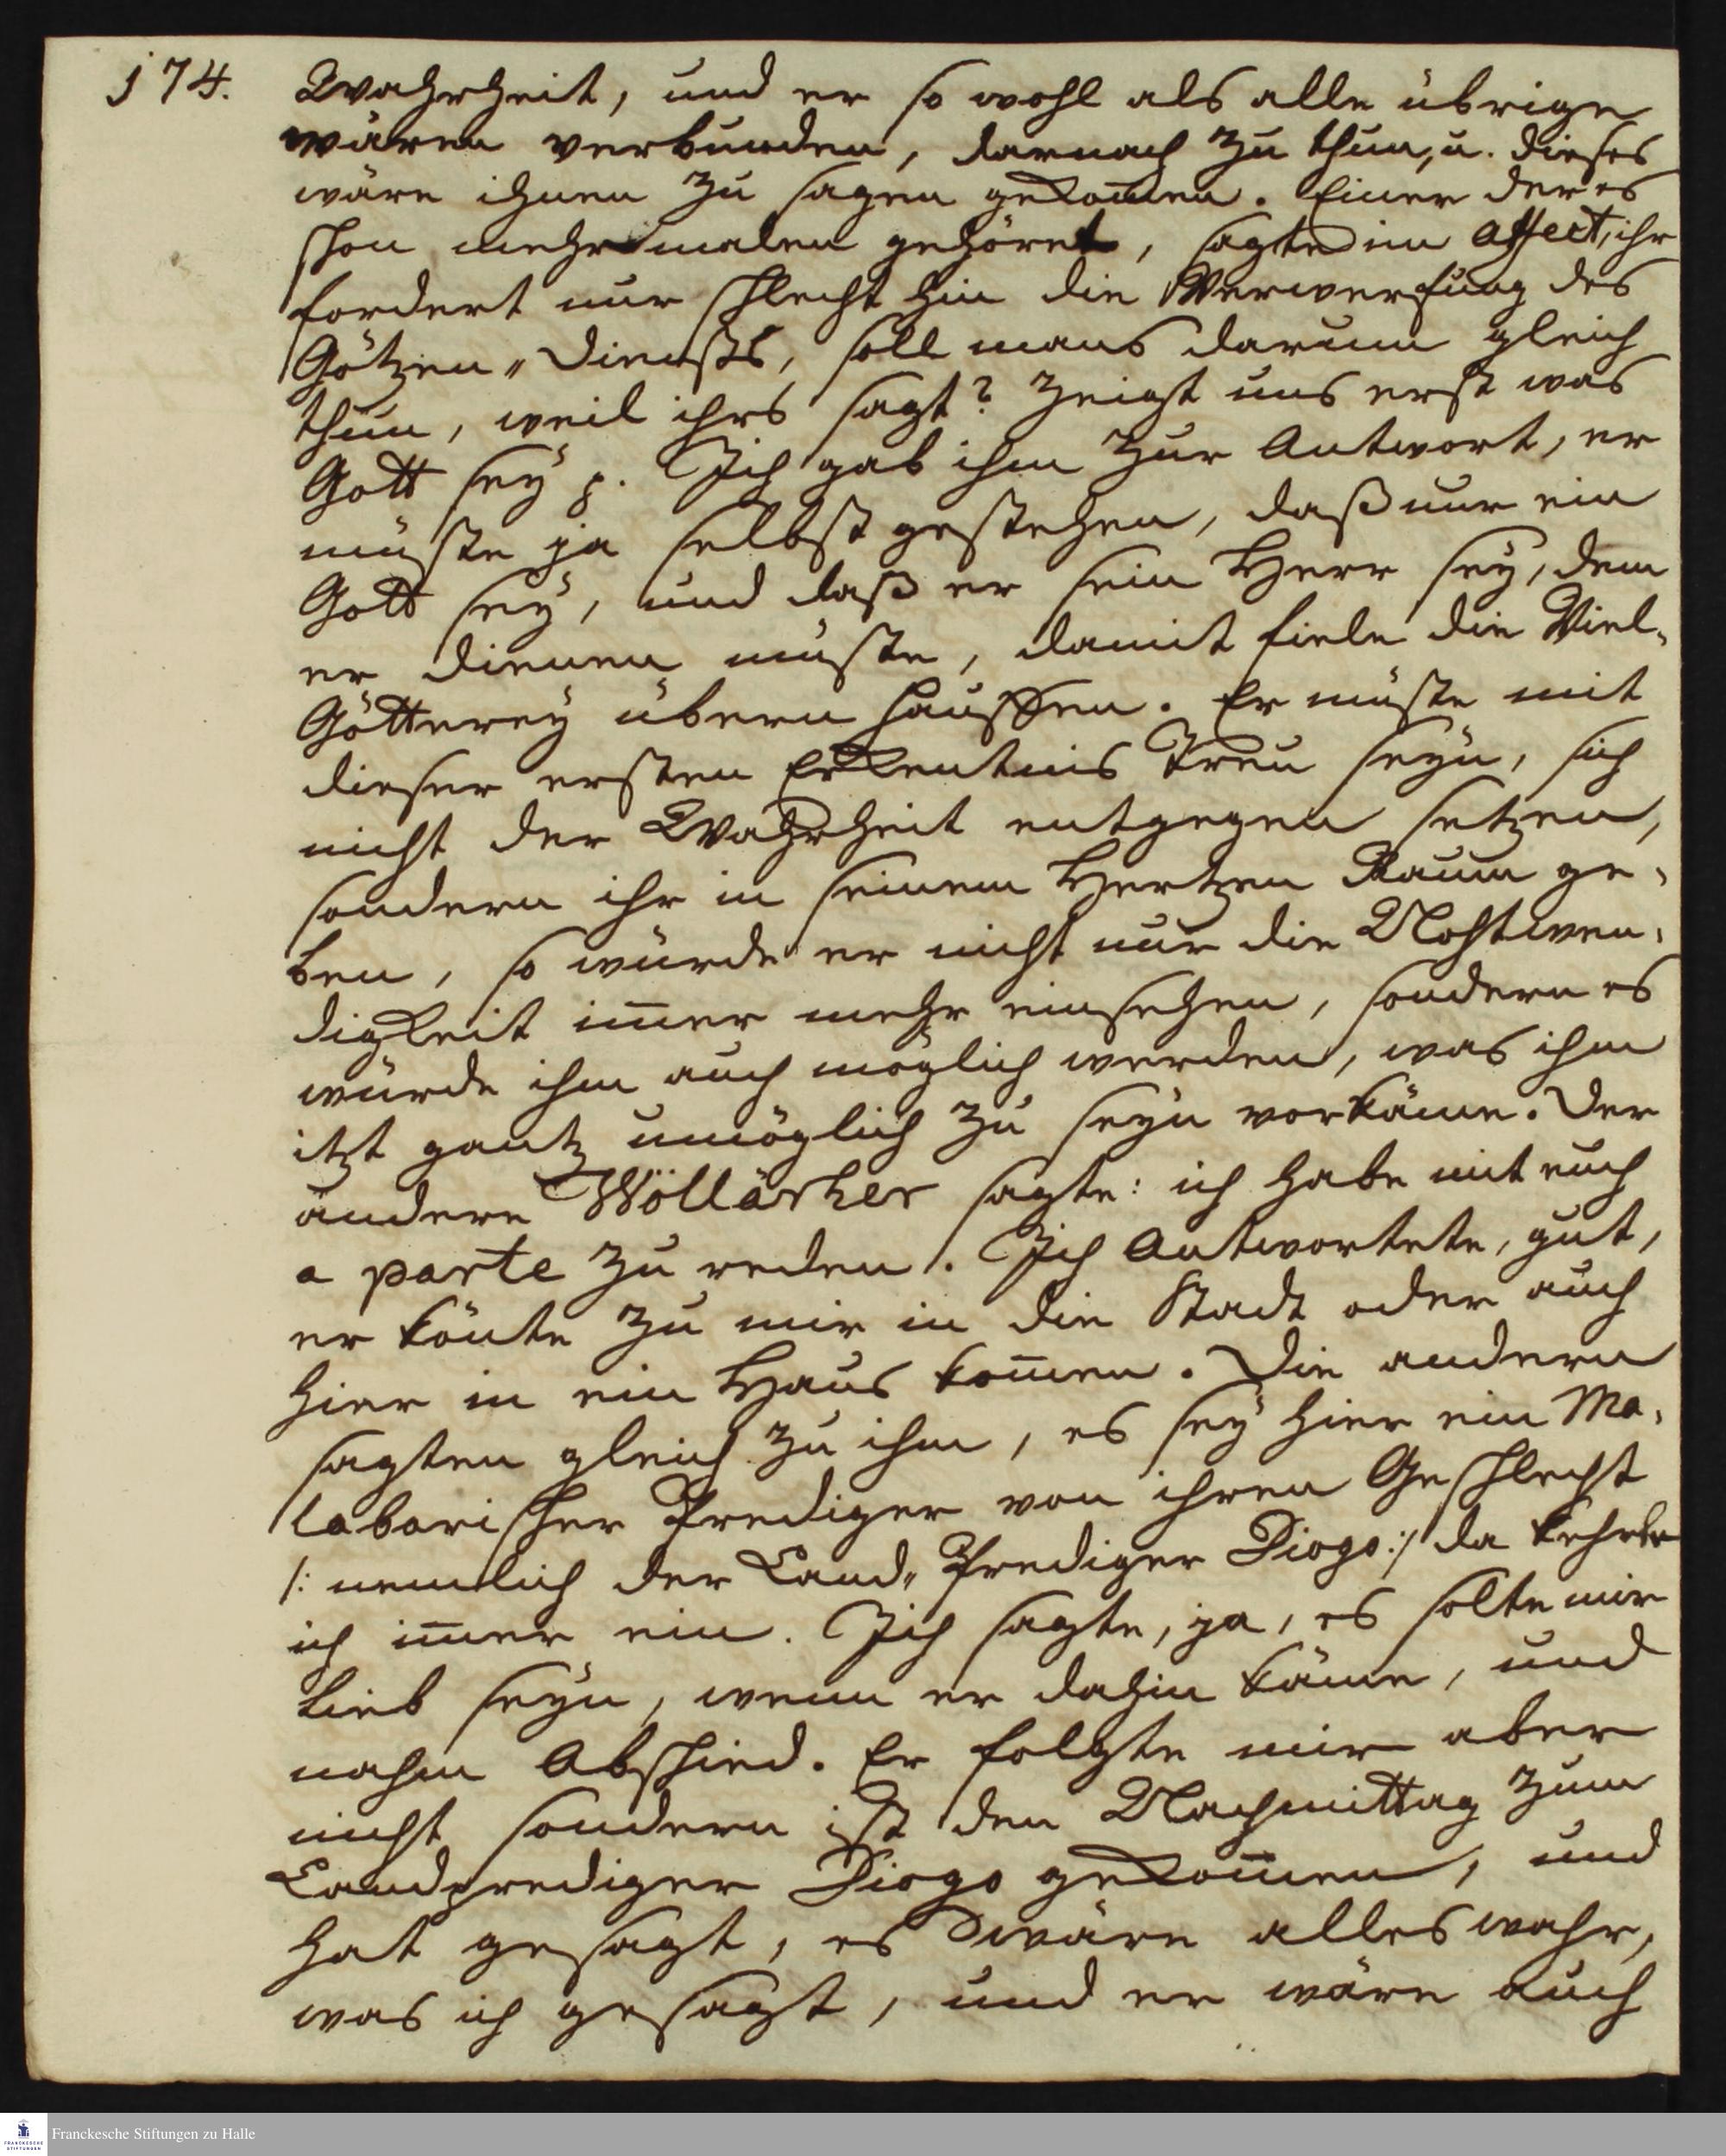 174.
Wahrheit, und er so wohl als alle übrige
wären verbunden, darnach zu thun, u. dieses
wäre ihnen zu sagen gekom̄en. Einer der es
schon mehrmalen gehöret, sagte im Affect, ihr
fordert nur schlecht hin die Verwerfung des
Götzen„Diensts, soll mans darum gleich
thun, weil ihrs sagt? Zeigt uns erst was
Gott seÿ p. Ich gab ihm zur Antwort, er
müste ja selbst gestehen, daß nur ein
Gott seÿ, und daß er sein Herr seÿ, dem
er dienen müste, damit fiele die Viel„
Götterey übern Hauffen. Er müste mit
dieser ersten Erkentnis Treu seyn, sich
nicht der Wahrheit entgegen setzen,
sondern ihr in seinem Hertzen Raum ge„
ben, so würde er nicht nur die Nohtwen„
digkeit im̄er mehr einsehen, sondern es
würde ihm auch möglich werden, was ihm
itzt gantz unmöglich zu seyn vorkäme. Der
andere Wöllärher sagte: ich habe mit euch
a parte zu reden. Ich Antwortete, gut,
er könte zu mir in die Stadt oder auch
hier in ein Haus kom̄en. Die andern
sagten gleich zu ihm, es seÿ hier ein Ma„
labarischer Prediger von ihren Geschlecht
/: nemlich der Land„Prediger Diogo:/ da kehrte
ich im̄er ein. Ich sagte, ja, es solte mir
lieb seyn, wenn er dahin käme, und
nahm Abschied. Er folgte mir aber
nicht sondern ist den Nachmittag zum
Landprediger Diogo gekom̄en, und
hat gesagt, es wäre alles wahr,
was ich gesagt, und er wäre auch
Franckesche Stiftungen zu Halle